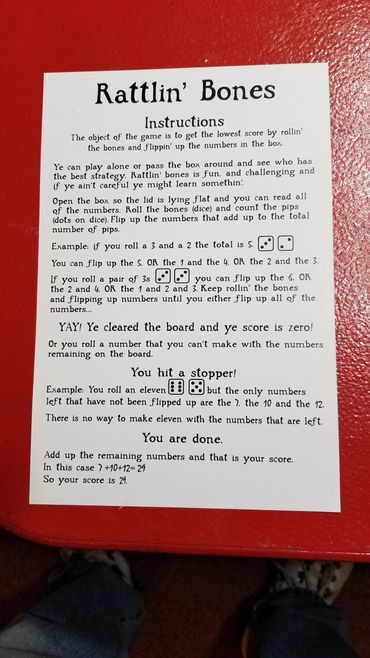 Rattlin' Bones
Instructions
The object of the game is to get the lowest score by rollin'
the bones and flippin' up the numbers in the box.
Ye can play alone or pass the box around and see who has
the best strategy. Rattlin' bones is fun, and challenging and
if ye ain't careful ye might learn somethin'.
Open the box so the lid is lying flat and you can read all
of the numbers. Roll the bones (dice) and count the pips
(dots on dice). Flip up the numbers that add up to the total
number of pips.
Example: if you roll a 3 and a 2 the total is 5.
You can flip up the 5. OR the 1 and the 4. OR the 2 and the 3.
If you roll a pair of 3s you can flip up the 6. OR
the 2 and 4. OR the 1 and 2 and 3. Keep rollin' the bones
and flipping up numbers until you either flip up all of the
numbers...
YAY! Ye cleared the board and ye score is zero!
Or you roll a number that you can't make with the numbers
remaining on the board.
You hit a stopper!
Example: You roll an eleven but the only numbers
left that have not been flipped up are the 7. the 10 and the 12.
There is no way to make eleven with the numbers that are left.
You are done.
Add up the remaining numbers and that is your score.
In this case 7 +10+12= 29
So your score is 29.